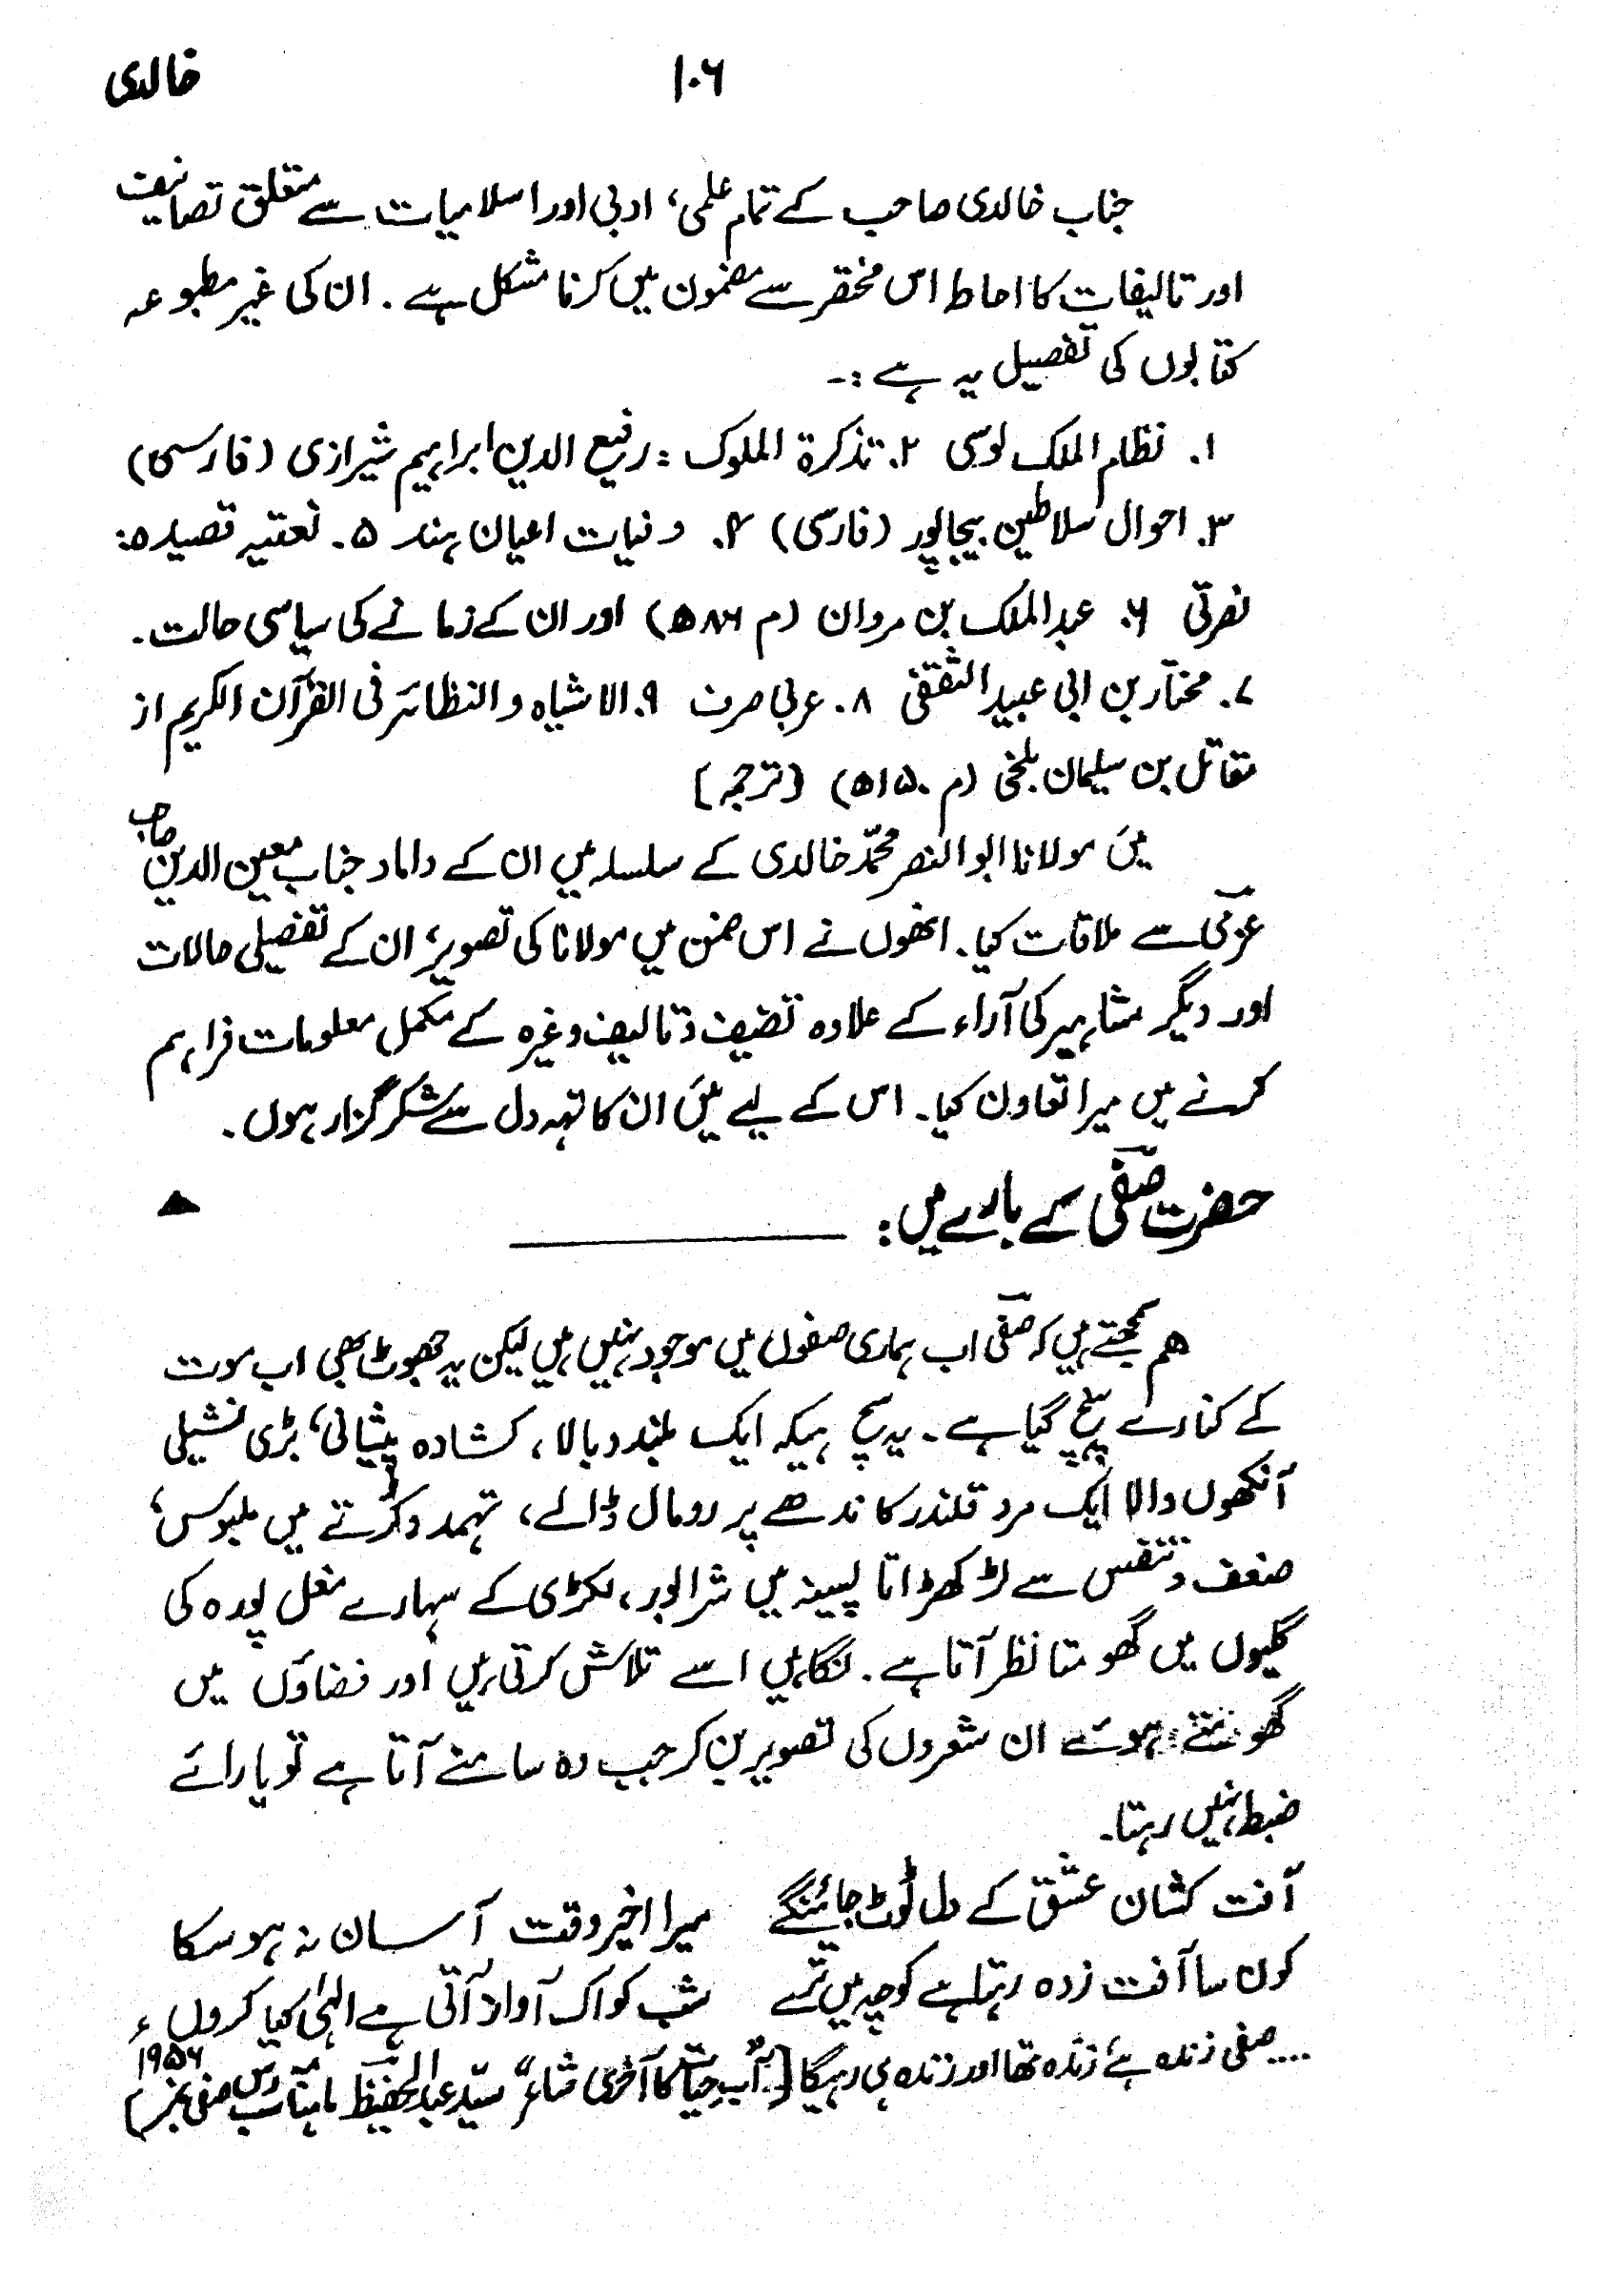 خالدی
۱۰۶
جناب خالدی صاحب کے تمام علمی، ادبی اور اسلامیات سے متعلق تصانیف
اور تالیفات کا احاط اس مختصر سے مضمون میں کرنا مشکل ہے۔ ان کی غیر مطبوعہ
کتابوں کی تفصیل یہ ہے :۔
۱۔ نظام الملک لوسی ۲۔ تذکرۃ الملوک : رفیع الدین ابراہیم شیرازی (فارسی)
۳۔ احوال سلاطین بیجاپور (فارسی) ۴۔ وفیات اعیان ہند ۵۔ نعتیہ قصیدہ:
نصرتی ۶۔ عبدالملک بن مروان (م ۸۶ھ) اور ان کے زمانے کی سیاسی حالت۔
۷۔ مختار بن ابی عبید الثقفی ۸۔ عربی صرف ۹۔ الاشباہ والنظائر فی القرآن الکریم از
مقاتل بن سلیمان بلخی (م ۱۵۰ھ) [ترجمہ]
میں مولانا ابوالنصر محمّد خالدی کے سلسلہ میں ان کے داماد جناب معین الدین صاحب
عزمی سے ملاقات کیا۔ انھوں نے اس ضمن میں مولانا کی تصویر، ان کے تفصیلی حالات
اور دیگر مشاہیر کی آراء کے علاوہ تصنیف و تالیف وغیرہ کے مکمل معلومات فراہم
کرنے میں میرا تعاون کیا۔ اس کے لیے میں ان کا تہہ دل سے شکر گزار ہوں۔
حضرت صفی کے بارے میں:
ھم سمجھتے ہیں کہ صفی اب ہماری صفوں میں موجود نہیں ہیں لیکن یہ جھوٹ بھی اب موت
کے کنارے پہنچ گیا ہے۔ یہ سچ ہیکہ ایک بلند و بالا، کشادہ پیشانی، بڑی نشیلی
آنکھوں والا ایک مرد قلندر کاندھے پر رومال ڈالے، تہمد و کُرتے میں ملبوس،
ضعف و تنفس سے لڑکھڑاتا پسینہ میں شرابور، لکڑی کے سہارے مغل پورہ کی
گلیوں میں گھومتا نظر آتا ہے۔ نگاہیں اسے تلاش کرتی ہیں اور فضاؤں میں
گھومتے ہوئے ان شعروں کی تصویر بن کر جب وہ سامنے آتا ہے تو یارائے
ضبط نہیں رہتا۔
آفت کشان عشق کے دل ٹوٹ جائینگے میرا اخیر وقت آسان نہ ہو سکا
کون سا آفت زدہ رہتا ہے کوچہ میں ترے شب کو اک آواز آتی ہے الہیٰ کیا کروں
....صفی زندہ ہے، زندہ تھا اور زندہ ہی رہیگا [۔۔"آبِ حیات کا آخری شاعر" سیّد عبدالحفیظ ماہتاب رس صفی نمبر ۱۹۵۶ء]